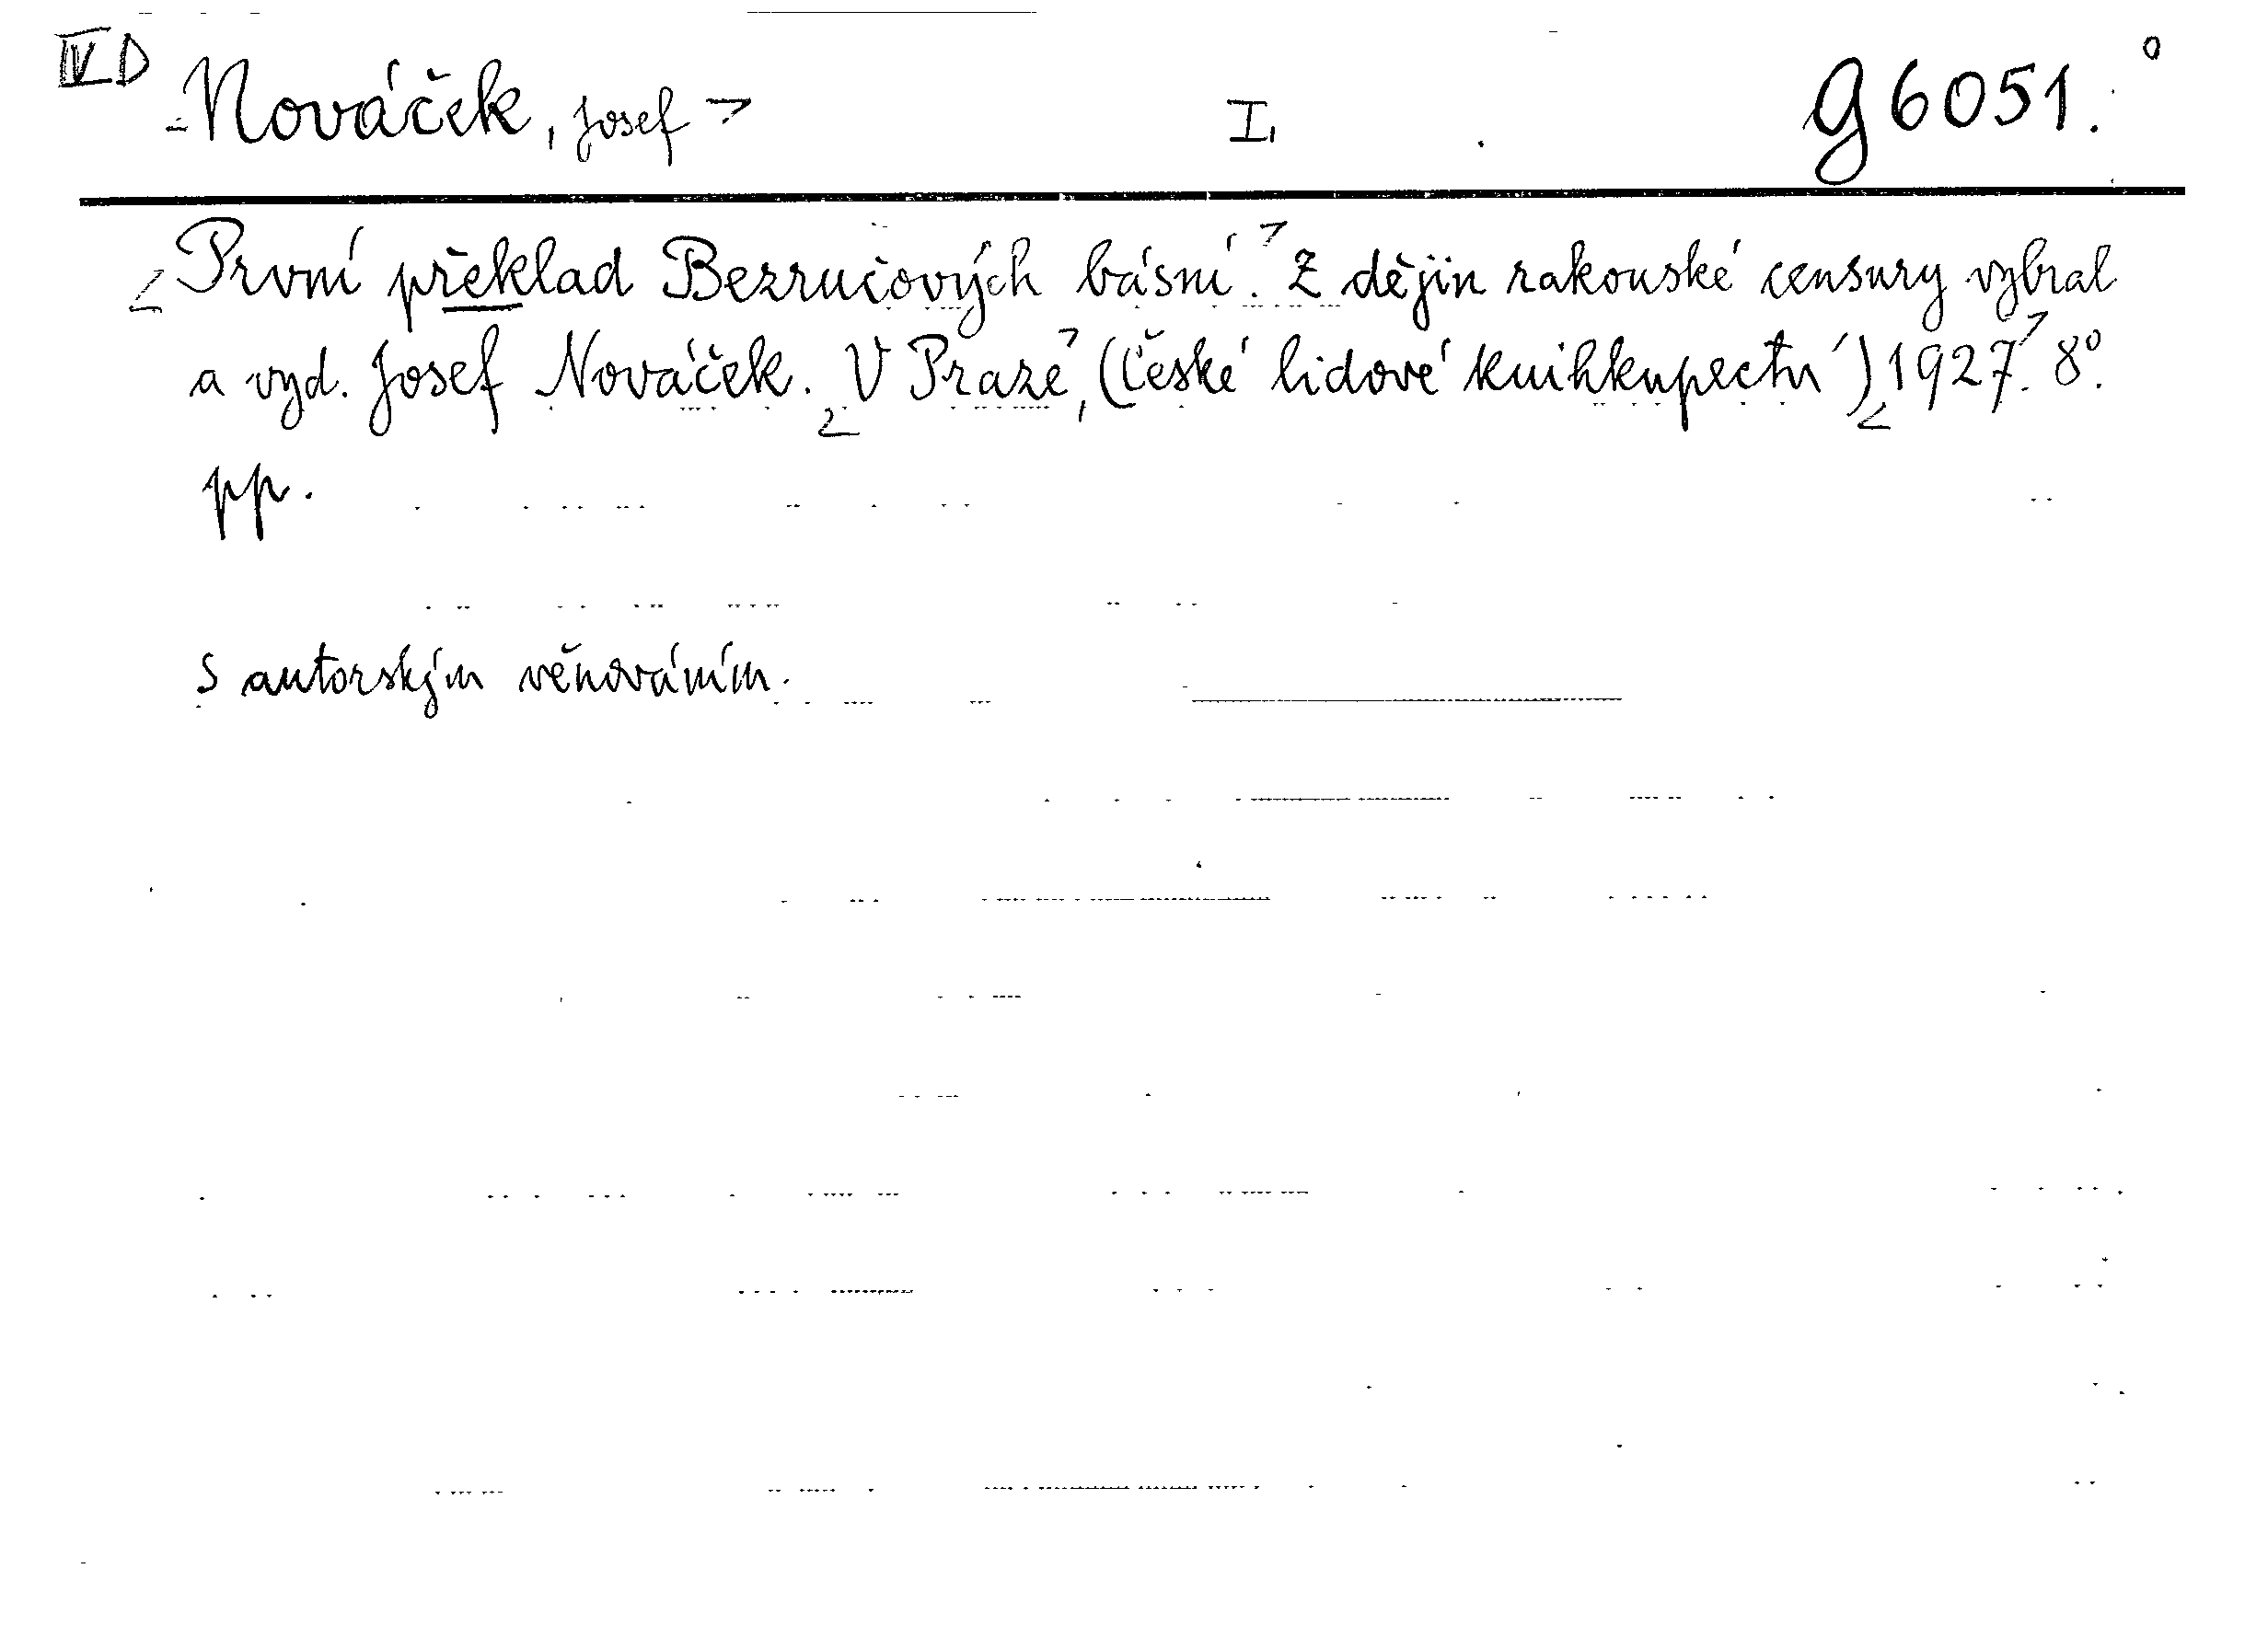 IVD Nováček, Josef I, g 6051.
První překlad Bezručových básní. Z dějin rakouské censury vybral
a vyd. Josef Nováček. V Praze, (České lidové knihkupectví) 1927. 8°.
pp.
S autorským věnováním.